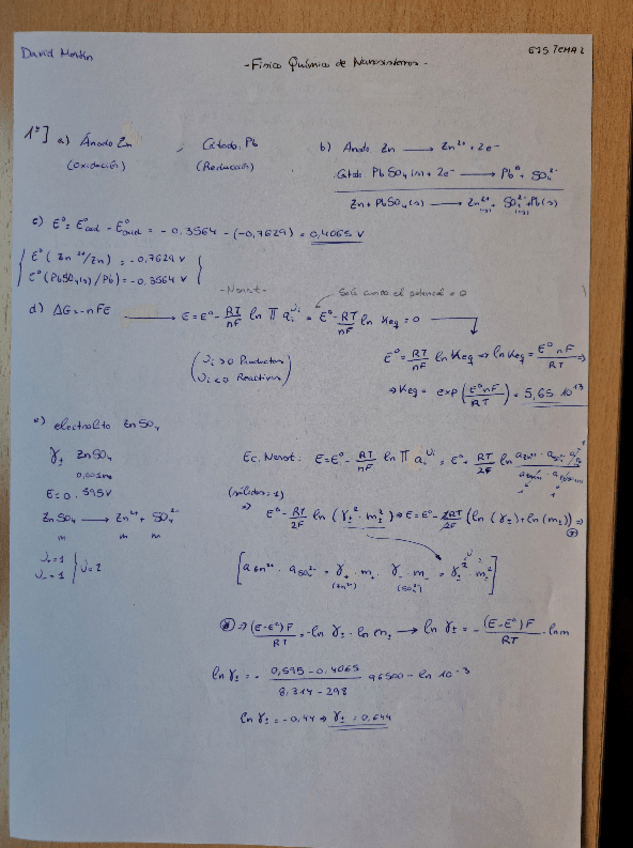 David Martín
EJS TEMA 2
- Físico Química de Nanosistemas -
1º] a) Ánodo Zn , Cátodo Pb
(Oxidación) (Reducción)
b) Anodo Zn ⟶ Zn²⁺ + 2e⁻
Catodo PbSO₄(s) + 2e⁻ ⟶ Pb⁰ + SO₄²⁻
Zn + PbSO₄(s) ⟶ Zn²⁺(aq) + SO₄²⁻(aq) + Pb(s)
c) E⁰ = E⁰cat - E⁰anod = - 0,3564 - (-0,7629) = 0,4065 V
E⁰ (Zn²⁺/Zn) = -0,7629 V
E⁰ (PbSO₄(s)/Pb) = -0,3564 V
- Nernst -
Solo cuando el potencial = 0
d) ΔG = -nFE ⟶ E = E⁰ - RT/nF ln ∏ aᵢ^νᵢ = E⁰ - RT/nF ln Keq = 0
(νᵢ > 0 Productos
νᵢ < 0 Reactivos)
E⁰ = RT/nF ln Keq ⇒ ln Keq = E⁰nF/RT ⇒
⇒ Keq = exp(E⁰nF/RT) = 5,65 · 10¹³
e) electrolito ZnSO₄
γ± ZnSO₄
0,001m
E = 0.595V
ZnSO₄ ⟶ Zn²⁺ + SO₄²⁻
m m m
ν₊ = 1
ν₋ = 1 } ν = 2
Ec. Nernst: E = E⁰ - RT/nF ln ∏ aᵢ^νᵢ
(sólidos = 1)
⇒ E⁰ - RT/2F ln (γ±² · m±²) ⇒ E = E⁰ - 2RT/2F (ln (γ±) + ln (m±)) ⇒
[a Zn²⁺ · a SO₄²⁻ = γ₊ · m₊ · γ₋ · m₋ = γ±² · m±²]
(Zn²⁺) (SO₄²⁻)
⇒ (E-E⁰)F/RT = -ln γ± - ln m± ⟶ ln γ± = - (E-E⁰)F/RT - ln m
ln γ± = - (0,595 - 0,4065)/(8,314 - 298) 96500 - ln 10⁻³
ln γ± = -0,44 ⇒ γ± = 0,644